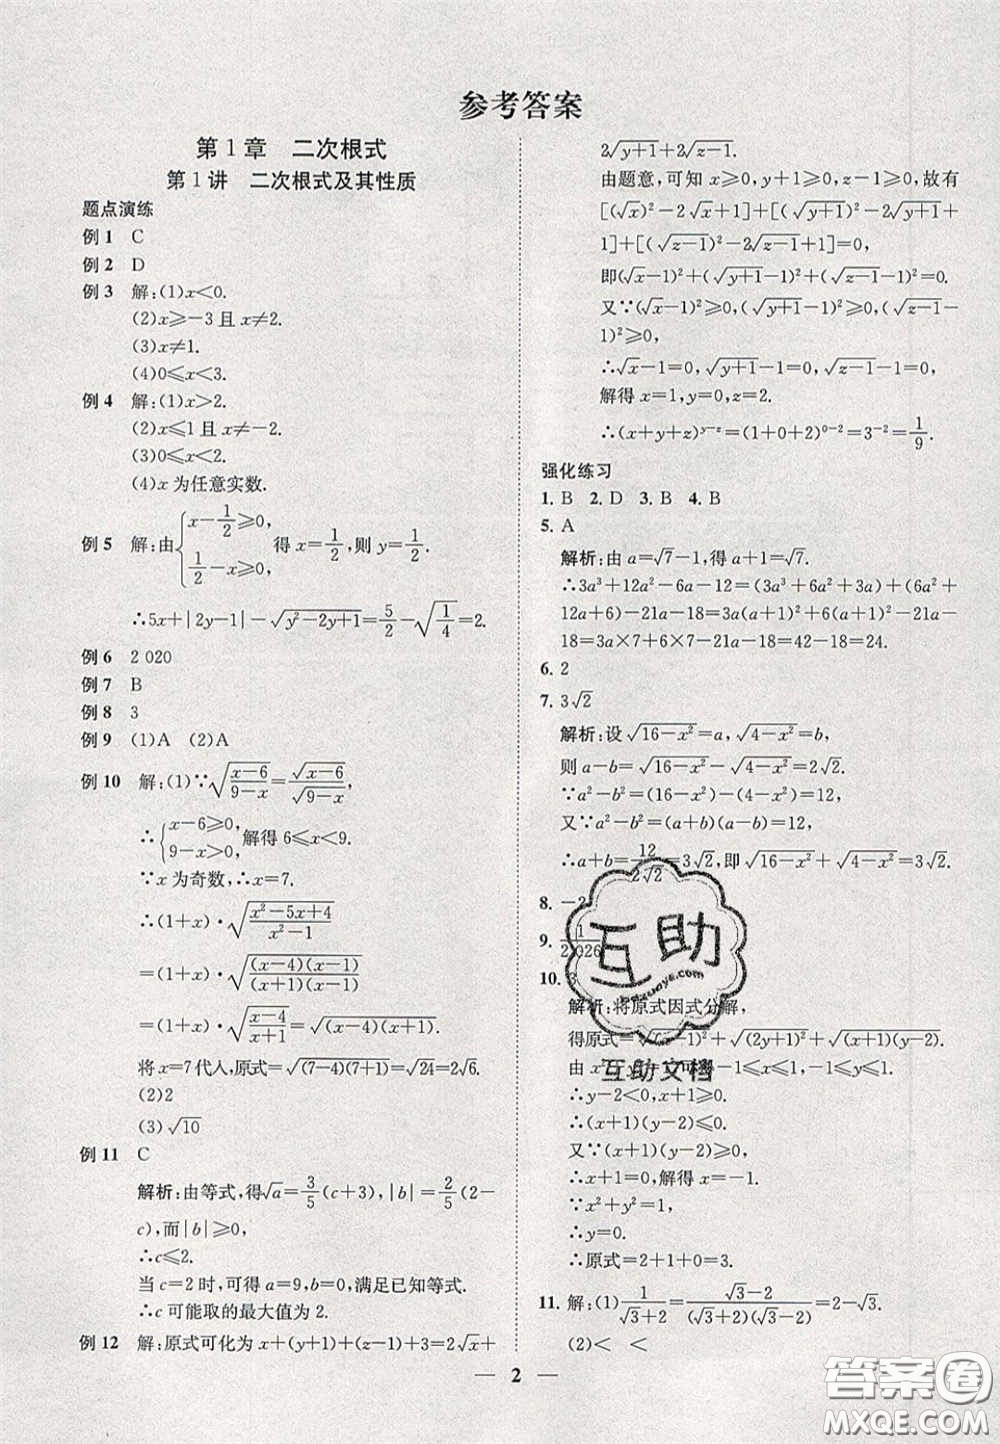 参考答案
第1章 二次根式
第1讲 二次根式及其性质
题点演练
例1 C
例2 D
例3 解:(1)x<0.
(2)x≥-3且x≠2.
(3)x≠1.
(4)0≤x<3.
例4 解:(1)x>2.
(2)x≤1且x≠-2.
(3)0≤x<2.
(4)x为任意实数.
例5 解:由{x-1/2≥0, 1/2-x≥0, 得x=1/2,则y=1/2.
∴5x+|2y-1|-√(y²-2y+1)=5/2-√(1/4)=2.
例6 2 020
例7 B
例8 3
例9 (1)A (2)A
例10 解:(1)∵√((x-6)/(9-x))=√(x-6)/√(9-x),
∴{x-6≥0, 9-x>0, 解得6≤x<9.
∵x为奇数,∴x=7.
∴(1+x)·√((x²-5x+4)/(x²-1))
=(1+x)·√((x-4)(x-1)/((x+1)(x-1)))
=(1+x)·√((x-4)/(x+1))=√((x-4)(x+1)).
将x=7代入,原式=√((7-4)(7+1))=√24=2√6.
(2)2
(3)√10
例11 C
解析:由等式,得√a=3/5(c+3),|b|=2/5(2-
c),而|b|≥0,
∴c≤2.
当c=2时,可得a=9,b=0,满足已知等式.
∴c可能取的最大值为2.
例12 解:原式可化为x+(y+1)+(z-1)+3=2√x+
2√(y+1)+2√(z-1).
由题意,可知x≥0,y+1≥0,z-1≥0,故有
[(√x)²-2√x+1]+[(√(y+1))²-2√(y+1)+
1]+[(√(z-1))²-2√(z-1)+1]=0,
即(√x-1)²+(√(y+1)-1)²+(√(z-1)-1)²=0.
又∵(√x-1)²≥0,(√(y+1)-1)²≥0,(√(z-1)-
1)²≥0,
∴√x-1=0,√(y+1)-1=0,√(z-1)-1=0,
解得x=1,y=0,z=2.
∴(x+y+z)^(y-z)=(1+0+2)^(0-2)=3^(-2)=1/9.
强化练习
1. B 2. D 3. B 4. B
5. A
解析:由a=√7-1,得a+1=√7.
∴3a³+12a²-6a-12=(3a³+6a²+3a)+(6a²+
12a+6)-21a-18=3a(a+1)²+6(a+1)²-21a-
18=3a×7+6×7-21a-18=42-18=24.
6. 2
7. 3√2
解析:设√(16-x²)=a,√(4-x²)=b,
则a-b=√(16-x²)-√(4-x²)=2√2.
∵a²-b²=(16-x²)-(4-x²)=12,
又∵a²-b²=(a+b)(a-b)=12,
∴a+b=12/(2√2)=3√2,即√(16-x²)+√(4-x²)=3√2.
8. -2
9. 1/2 026
10. 3
解析:将原式因式分解,
得原式=√((x-2)²)+√((2y+1)²)+√((x+1)(y-2)).
由x²+y²=1,得-1≤x≤1,-1≤y≤1.
∴y-2<0,x+1≥0.
∴(x+1)(y-2)≤0.
又∵(x+1)(y-2)≥0,
∴x+1=0,∴x=-1.
∵x²+y²=1,
∴y=0.
∴原式=2+1+0=3.
11. 解:(1)1/(√3+2)=(√3-2)/((√3+2)(√3-2))=2-√3.
(2)< <
2
互助
互助文档
答案圈
MXQE.COM